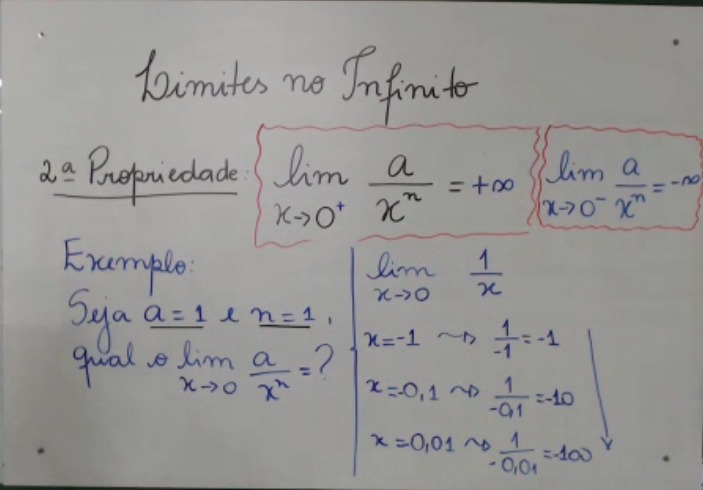 Limites no Infinito
2ª Propriedade: lim x→0⁺ a/xⁿ = +∞ lim x→0⁻ a/xⁿ = -∞
Exemplo:
Seja a=1 e n=1,
qual o lim x→0 a/xⁿ = ?
lim x→0 1/x
x=-1 ⇝ 1/-1 = -1
x=-0,1 ⇝ 1/-0,1 = -10
x=0,01 ⇝ 1/-0,01 = -100